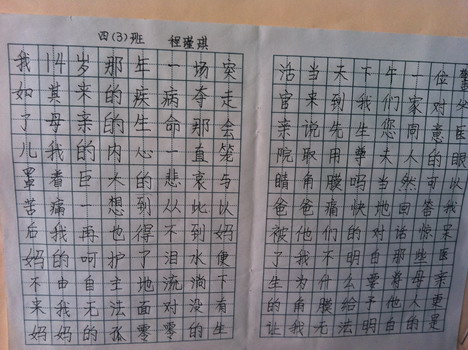 四(3)班 程瑾琪
我14岁那年一场突
如其来的疾病夺走
了母亲的生命那会
儿我的内心一直笼
罩着巨大的悲哀与
苦痛一想到从此以
后我再也得不到妈
妈的呵护了泪水便
不由自主地流淌下
来我无法面对没有
妈妈的孤零零的生
活当天下午一位医
官来到我们家对父
亲说先生您同意医
院取用尊夫人的眼
睛角膜吗当然可以
爸爸痛快地回答我
被他们的对话惊呆
了我不明白那些医
生为什么要将母亲
的角膜给予他人更
让我无法明白的是